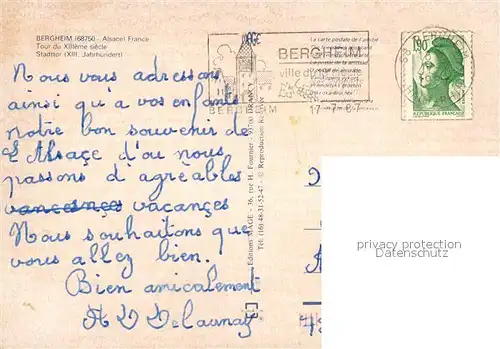 BERGHEIM (68750) - Alsace( France
Tour du XIIIème siècle
Stadttor (XIII. Jahrhundert)
BERGHEIM
BERGHEIM
17-7-87
1,90
RÉPUBLIQUE FRANÇAISE
Nous vous adressons
ainsi qu'a vos enfants
notre bon souvenir de
L'Alsace d'ou nous
passons d'agréables
vacances
Nous souhaitons que
vous allez bien.
Bien amicalement
A D Delaunay
Éditions MAGE - 36, rue H. Fournier - 93700 DRANCY
Tél. (16) 48-31-52-47 - © Reproduction Réservée
privacy protection
Datenschutz